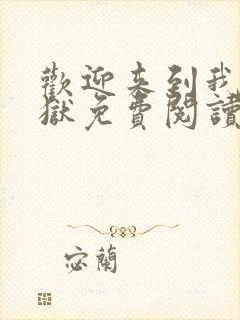 歡迎來到我
獄免費閱讀
宓蘭